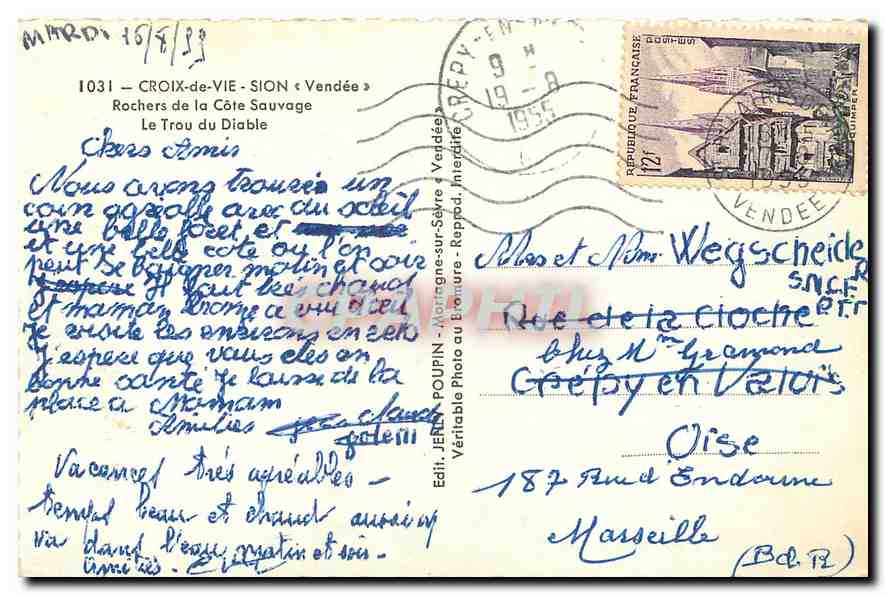 MARDI 16/8/55
1031 — CROIX-de-VIE - SION « Vendée »
Rochers de la Côte Sauvage
Le Trou du Diable
Chers Amis
Nous avons trouvé un
coin agréable avec du soleil
une belle foret et
et une belle cote ou l'on
peut se baigner matin et soir
Il fait très chaud
et maman
je visite les environs en velo
J'espere que vous etes en
bonne santé je laisse de la
place a Mamam
Amitiés
Vacances très agréables -
Temps beau et chaud aussi on
va dans l'eau matin et soir -
Amitiés -
Edit. JEHLY-POUPIN - Mortagne-sur-Sèvre « Vendée »
Véritable Photo au Bromure - Reprod. Interdite
CRÉPY-EN-
9 H
19 - 8
1955
REPUBLIQUE FRANÇAISE
POSTES
12f
QUIMPER
VENDEE
CPAPHIL
et Mme Wegscheider
S.N.C.F
Rue de la Cloche
chez Mme Gramond
Crépy en Valois
Oise
187 Rue d'Endoume
Marseille
(Bd. R)